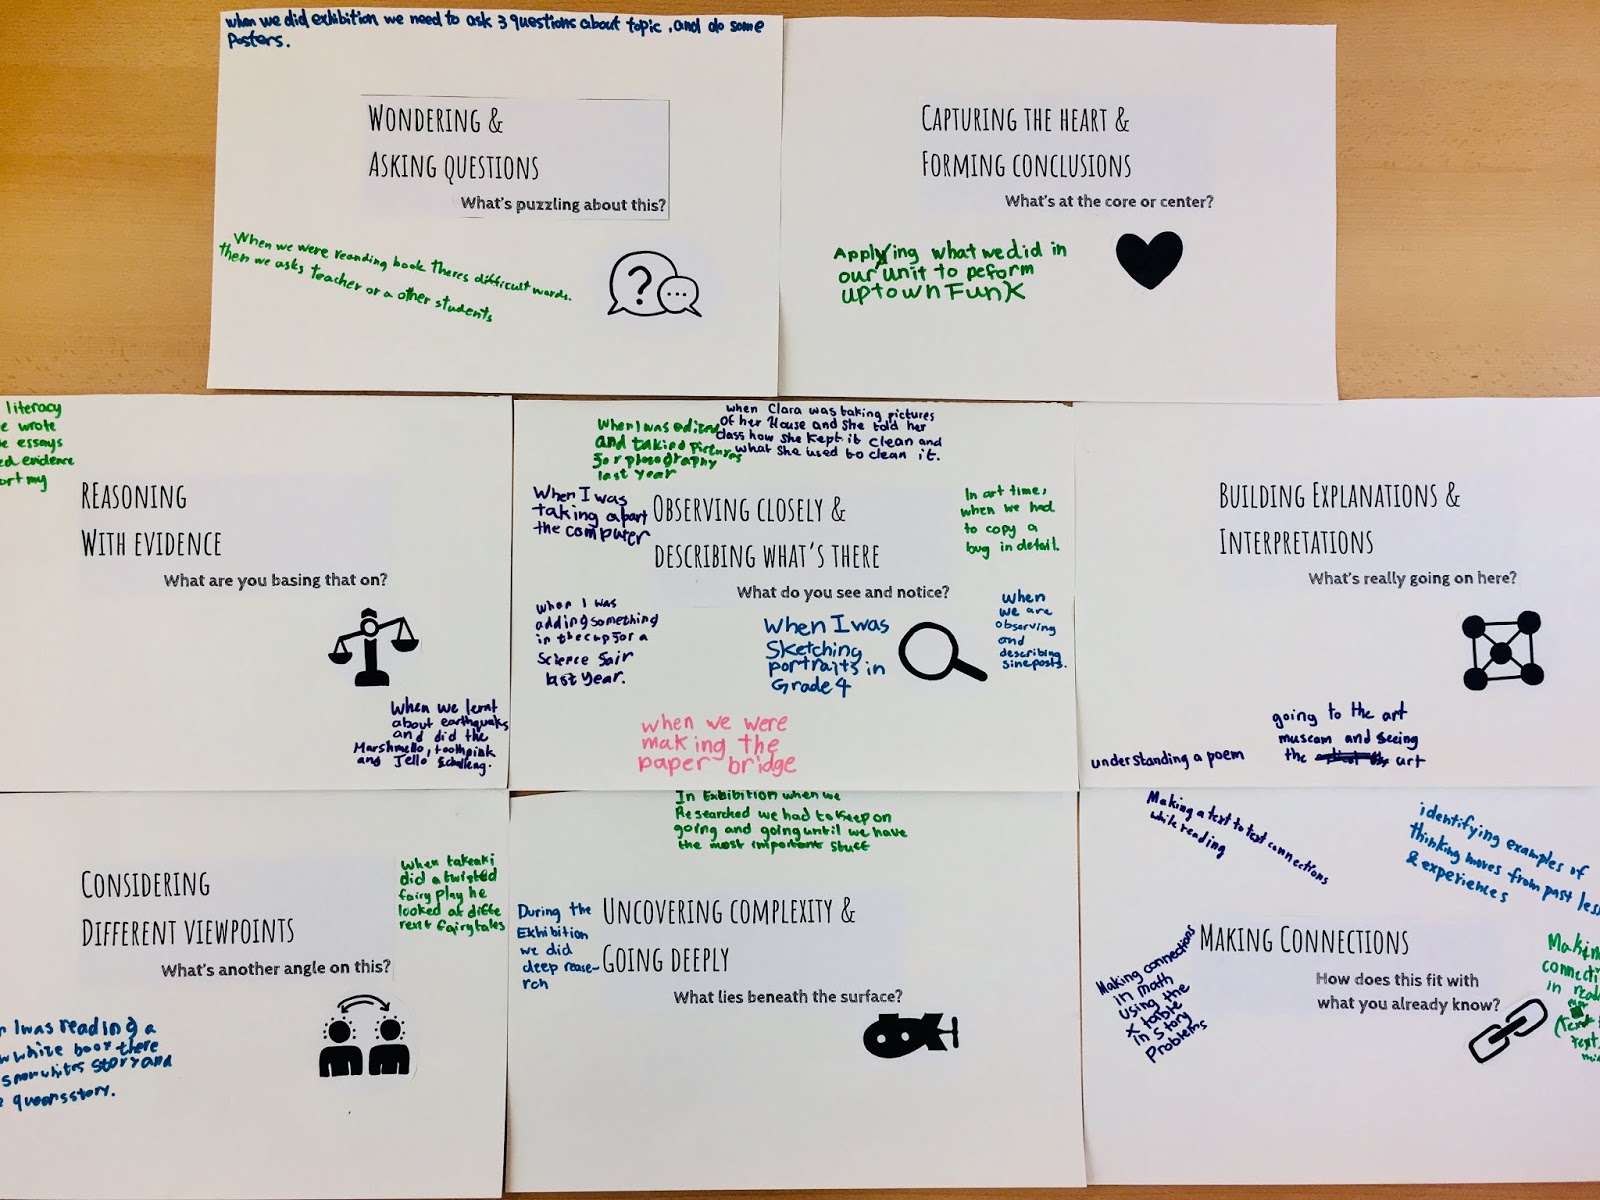 when we did exhibition we need to ask 3 questions about topic, and do some
Posters.
WONDERING &
ASKING QUESTIONS
What's puzzling about this?
When we were reanding book theres difficult words.
then we asks teacher or a other students
CAPTURING THE HEART &
FORMING CONCLUSIONS
What's at the core or center?
Applying what we did in
our unit to peform
uptown Funk
literacy
wrote
essays
evidence
my
REASONING
WITH EVIDENCE
What are you basing that on?
When we lernt
about earthquaks
and did the
Marshmello, toothpink
and Jello challeng.
When I was edited
and taking pictures
for photography
last year
when Clara was taking pictures
of her House and she told her
class how she kept it clean and
what she used to clean it.
When I was
taking apart
the computer
OBSERVING CLOSELY &
DESCRIBING WHAT'S THERE
What do you see and notice?
In art time,
when we had
to copy a
bug in detail.
when I was
adding something
in the cup for a
Science fair
last year.
When I was
Sketching
portraits in
Grade 4
When
we are
observing
and
describing
sineposts.
when we were
making the
paper bridge
BUILDING EXPLANATIONS &
INTERPRETATIONS
What's really going on here?
understanding a poem
going to the art
museam and seeing
the art
CONSIDERING
DIFFERENT VIEWPOINTS
What's another angle on this?
When takeaki
did a twisted
fairy play he
looked at diffe
rent fairytales
I was reading a
white book there
snow whites story and
queens story.
In Exbibition when we
Researched we had to keep on
going and going until we have
the most important stuff
During the
Exhibition
we did
deep resea-
rch
UNCOVERING COMPLEXITY &
GOING DEEPLY
What lies beneath the surface?
Making a text to text connections
while reading
identifying examples of
thinking moves from past
& experiences
MAKING CONNECTIONS
How does this fit with
what you already know?
Making connections
in math
using the
x table
in story
Problems
in
text